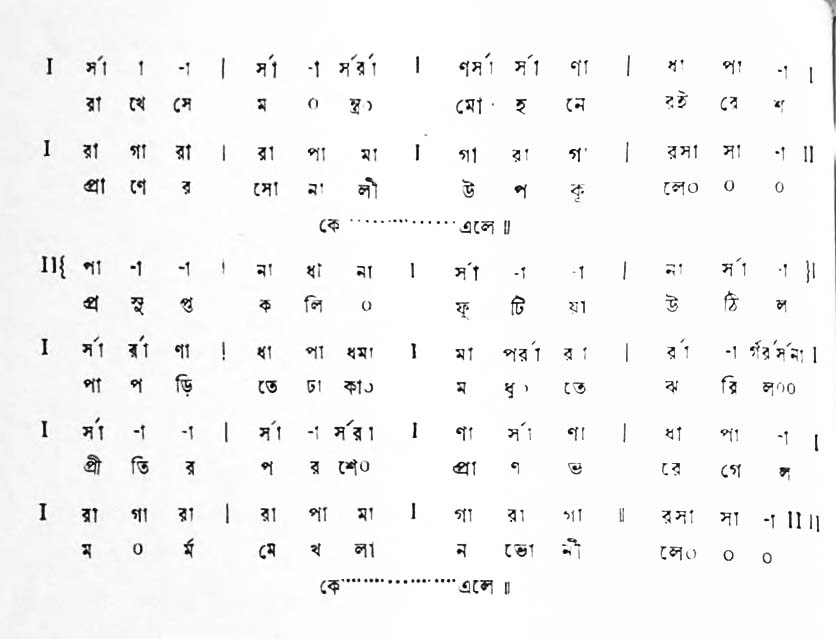 I র্সা া -া | র্সা -া র্সর্রা I ণর্সা র্সা ণা | ধা পা -া |
রা খে সে ম ০ ন্ত্র০ মো হ নে রই বে শ
I রা গা রা | রা পা মা I গা রা গা | রসা সা -া II
প্রা ণে র সো না লী উ প কূ লে০ ০ ০
কে ................ এলে ॥
II{ পা -া -া | না ধা না I র্সা -া -া | না র্সা -া }I
প্র সু প্ত ক লি ০ ফু টি য়া উ ঠি ল
I র্সা র্রা ণা | ধা পা ধমা I মা পর্রা রা | র্রা -া র্গর্রর্সনা I
পা প ড়ি তে ঢা কা০ ম ধু০ তে ঝ রি ল০০
I র্সা -া -া | র্সা -া র্সরা I ণা র্সা ণা | ধা পা -া |
প্রী তি র প র শে০ প্রা ণ ভ রে গে ল
I রা গা রা | রা পা মা I গা রা গা ॥ রসা সা -া II II
ম ০ র্ম মে খ লা ন ভো নী লে০ ০ ০
কে ................ এলে ॥